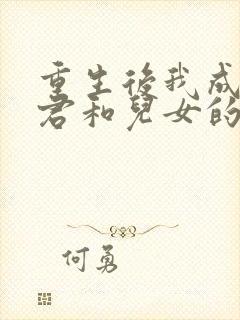 重生後我成
君和兒女的
何勇